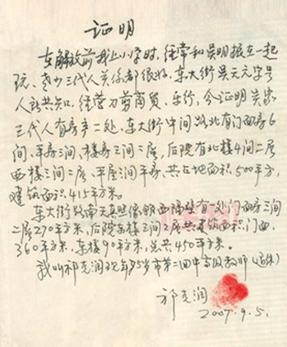 证明
在解放前我上小学时,经常和吴明振在一起
玩,老少三代人关系都很好,东大街吴元元字号
人所共知,经营刀剪商贸、乐行,今证明吴家
三代人有房产二处,东大街中间路北有门面房6
间,平房三间,楼房三间二层,后院有北楼4间二层
西楼三间二层,平屋三间,共占地面积500平方,
建筑面积415平方米。
东大街路南天真照像馆西隔壁有一处门面房三间
二层270平方米,后院东楼三间2层共建筑面积,门面,
360平方米,东楼90平方米,总共450平方米。
我叫祁克润现年75岁市第二回中高级教师(退休)
祁克润
2007.9.5.